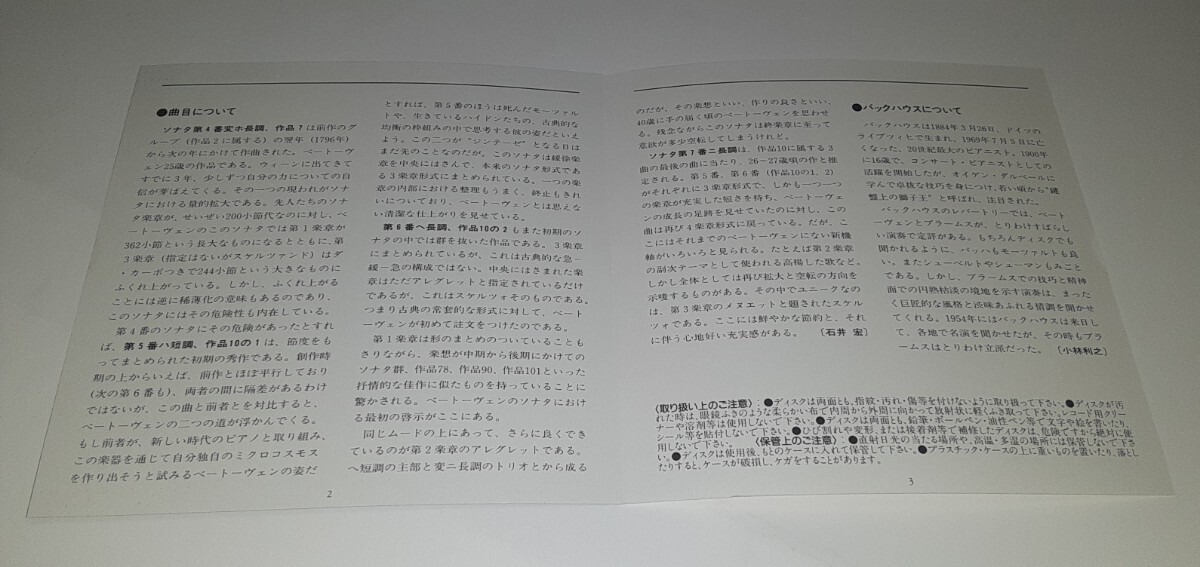 ●曲目について
ソナタ第4番変ホ長調、作品7は前作のグ
ループ(作品2に属する)の翌年(1796年)
から次の年にかけて作曲された。ベートーヴ
ェン25歳の作品である。ウィーンに出てきて
すでに3年、少しずつ自分の力についての自
信が芽ばえてくる。その一つの現われがソナ
タにおける量的拡大である。先人たちのソナ
タ楽章が、せいぜい200小節代なのに対し、ベ
ートーヴェンのこのソナタでは第1楽章が
362小節という長大なものになるとともに、第
3楽章(指定はないがスケルツァンド)はダ
・カーポつきで244小節という大きなものに
ふくれ上がっている。しかし、ふくれ上がる
ことには逆に稀薄化の意味もあるのであり、
このソナタにはその危険性も内在している。
第4番のソナタにその危険があったとすれ
ば、第5番ハ短調、作品10の1は、節度をも
ってまとめられた初期の秀作である。創作時
期の上からいえば、前作とほぼ平行しており
(次の第6番も)、両者の間に隔差があるわけ
ではないが、この曲と前者とを対比すると、
ベートーヴェンの二つの道が浮かんでくる。
もし前者が、新しい時代のピアノと取り組み、
この楽器を通じて自分独自のミクロコスモス
を作り出そうと試みるベートーヴェンの姿だ
とすれば、第5番のほうは死んだモーツァル
トや、生きているハイドンたちの、古典的な
均衡の枠組みの中で思考する彼の姿だといえ
よう。この二つが“ジンテーゼ”となる日は
まだ先のことなのだが。このソナタは緩徐楽
章を中央にはさんで、本来のソナタ形式であ
る3楽章形式にまとめられている。一つの楽
章の内部における整理もうまく、終止もきれ
いについており、ベートーヴェンとは思えな
い清潔な仕上がりを見せている。
第6番ヘ長調、作品10の2もまた初期のソ
ナタの中では群を抜いた作品である。3楽章
にまとめられているが、これは古典的な急―
緩―急の構成ではない。中央にはさまれた楽
章はただアレグレットと指定されているだけ
であるが、これはスケルツォそのものである。
つまり古典の常套的な形式に対して、ベート
ーヴェンが初めて注文をつけたのである。
第1楽章は形のまとめのついていることも
さりながら、楽想が中期から後期にかけての
ソナタ群、作品78、作品90、作品101といった
抒情的な佳作に似たものを持っていることに
驚かされる。ベートーヴェンのソナタにおけ
る最初の啓示がここにある。
同じムードの上にあって、さらに良くでき
ているのが第2楽章のアレグレットである。
ヘ短調の主部と変ニ長調のトリオとから成る
2
のだが、その楽想といい、作りの良さといい、
40歳に手の届く頃のベートーヴェンを思わせ
る。残念ながらこのソナタは終楽章に至って
意欲が多少空転してしまうけれど。
ソナタ第7番ニ長調は、作品10に属する3
曲の最後の曲に当たり、26~27歳頃の作と推
定される。第5番、第6番(作品10の1、2)
がそれぞれに3楽章形式で、しかも一つ一つ
の楽章が充実した短さを持ち、ベートーヴェ
ンの成長の足跡を見せていたのに対し、この
曲は再び4楽章形式に戻っている。だが、こ
こにはそれまでのベートーヴェンにない新機
軸がいろいろと見られる。たとえば第2楽章
の副次テーマとして使われる高揚した歌など。
しかし全体としては再び拡大と空転の方向を
示唆するものがある。その中でユニークなの
は、第3楽章のメヌエットと題されたスケル
ツォである。ここには鮮やかな節約と、それ
に伴う心地好い充実感がある。〔石井 宏〕
●バックハウスについて
バックハウスは1884年3月26日、ドイツの
ライプツィヒで生まれ、1969年7月5日に亡
くなった、20世紀最大のピアニスト。1900年
に16歳で、コンサート・ピアニストとしての
活躍を開始したが、オイゲン・ダルベールに
学んで卓抜な技巧を身につけ、若い頃から“鍵
盤上の獅子王”と呼ばれ、注目された。
バックハウスのレパートリーでは、ベート
ーヴェンとブラームスが、とりわけすばらし
い演奏で定評がある。もちろんディスクでも
聞かれるように、バッハもモーツァルトも良
い。またシューベルトやシューマンもみごと
である。しかし、ブラームスでの技巧と精神
面での円熟枯淡の境地を示す演奏は、まった
く巨匠的な風格と渋味あふれる情調を聞かせ
てくれる。1954年にはバックハウスは来日し
て、各地で名演を聞かせたが、その時もブラ
ームスはとりわけ立派だった。〔小林利之〕
〈取り扱い上のご注意〉:●ディスクは両面とも、指紋・汚れ・傷等を付けないように取り扱って下さい。●ディスクが汚
れた時は、眼鏡ふきのような柔らかい布で内周から外周に向かって放射状に軽くふき取って下さい。レコード用クリー
ナーや溶剤等は使用しないで下さい。●ディスクは両面とも、鉛筆・ボールペン・油性ペン等で文字や絵を書いたり、
シール等を貼付しないで下さい。●ひび割れや変形、または接着剤等で補修したディスクは、危険ですから絶対に使
用しないで下さい。〈保管上のご注意〉:●直射日光の当たる場所や、高温・多湿の場所には保管しないで下さ
い。●ディスクは使用後、もとのケースに入れて保管して下さい。●プラスチック・ケースの上に重いものを置いたり、落とし
たりすると、ケースが破損し、ケガをすることがあります。
3